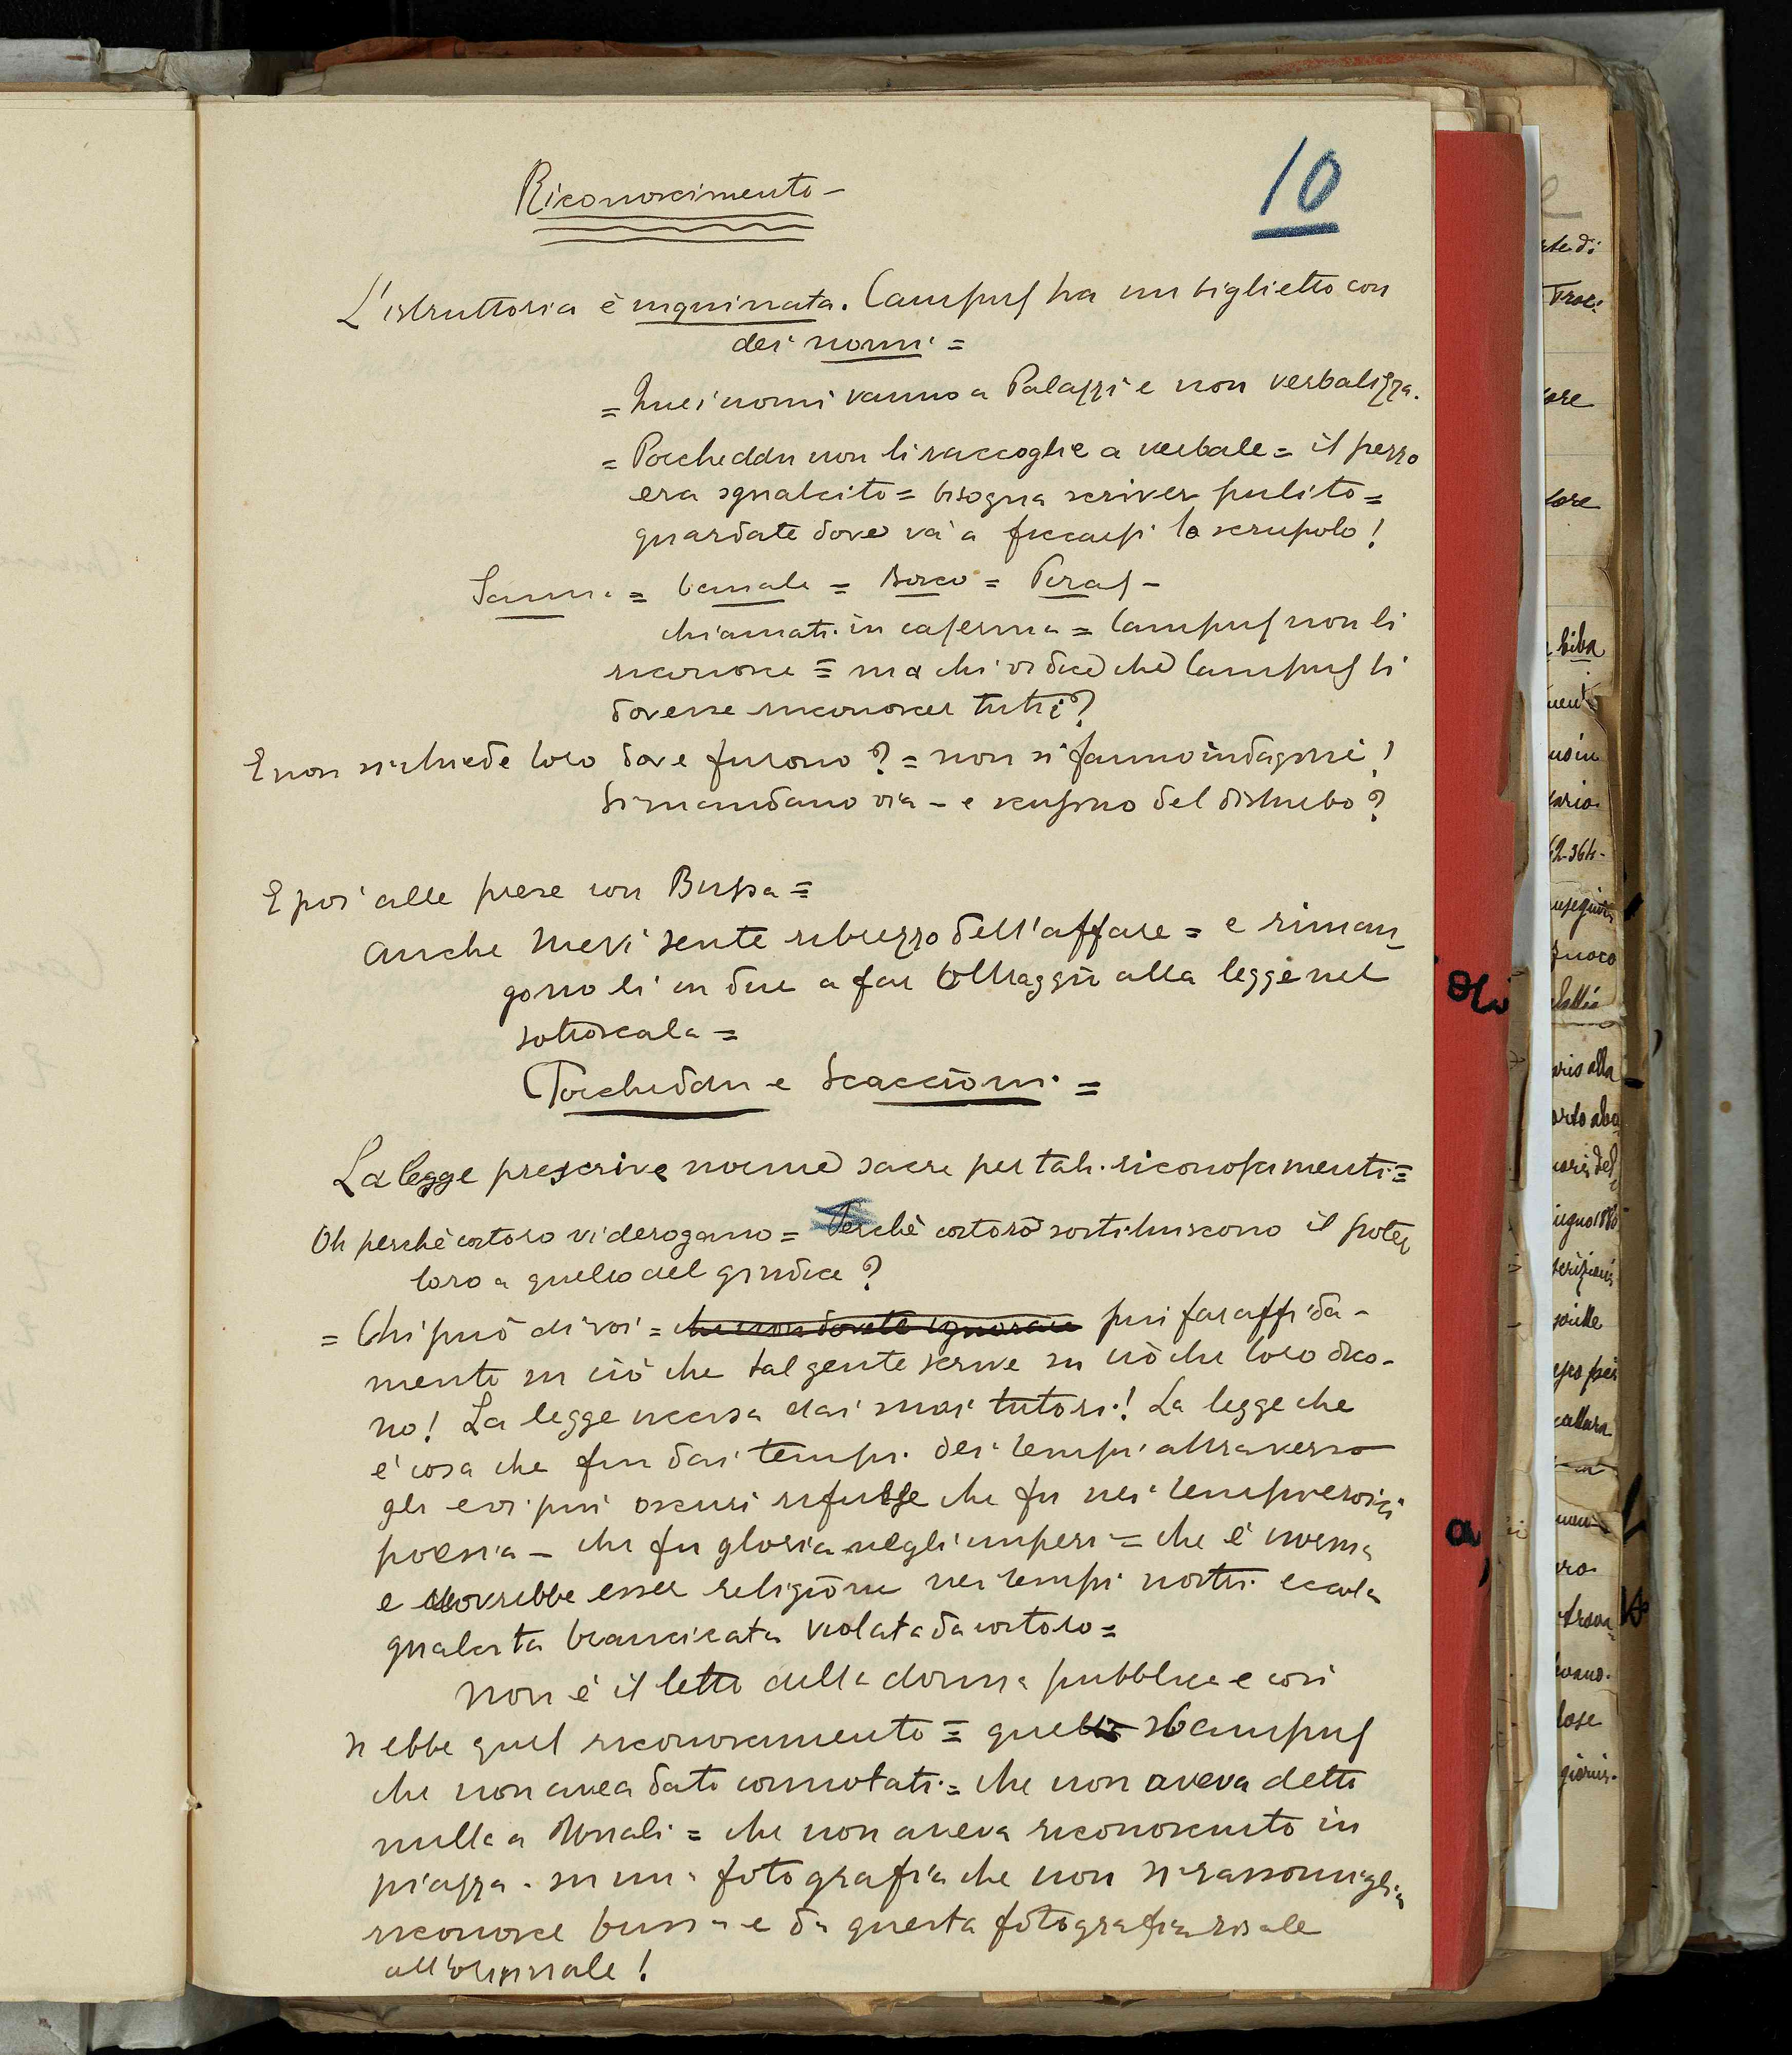 10
Riconoscimento -
L'istruttoria è inquinata. Campus ha un biglietto con
dei nomi =
= Quei nomi vanno a Palazzi e non verbalizza.
= Porcheddu non li raccoglie a verbale = il pezzo
era sgualcito = bisogna scriver pulito =
guardate dove va a ficcarsi lo scrupolo!
Sanna = Canale = Bosco = Piras -
chiamati in caserma = Campus non li
riconosce = ma chi vi dice che Campus li
dovesse riconoscer tutti?
E non si chiede loro dove furono? = non si fanno indagini!
Si mandano via - e scusino del disturbo?
E poi alle prese con Bussa =
Anche Mevi sente ribrezzo dell'affare = e riman-
gono lì in due a far oltraggio alla legge nel
sottoscala =
Porcheddu e Scaccioni =
La legge prescrive norme sacre per tali riconoscimenti =
Oh perchè costoro vi derogano = Perchè costoro sostituiscono il poter
loro a quello del giudice?
= Chi può di voi = che non dovete ignorare più far affida-
mento su ciò che tal gente scrive su ciò che loro dico-
no! La legge uccisa dai suoi tutori! La legge che
è cosa che fin dai tempi dei tempi attraverso
gli evi più oscuri rifulse che fu nei tempi eroici
poesia - che fu gloria negli imperi = che è norma
e dovrebbe esser religione nei tempi nostri eccola
gualcita brancicata violata da costoro =
Non è il letto della donna pubblica e così
si ebbe quel riconoscimento = quel Campus
che non avea dati connotati = che non aveva detto
nulla a Usnali = che non aveva riconosciuto in
piazza - su una fotografia che non si rassomiglia
riconosce bussa e da questa fotografia risale
all'originale!